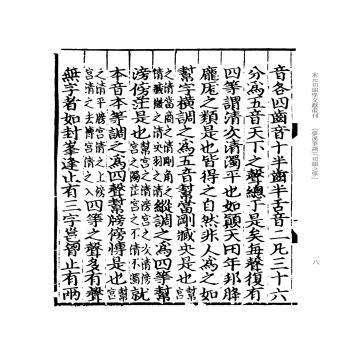 宋元切韻學文獻叢刊
《夢溪筆談》「切韻之學」
一八
音各四齒音十半齒半舌音二凡三十六
分為五音天下之聲總于是矣每聲復有
四等謂清次清濁平也如顛天田年邦胮
龐厖之類是也皆得之自然非人為之如
幫字橫調之為五音幫當剛臧央是也幫宮
之清當商之清剛角之清臧徵之清央羽之清縱調之為四等幫
滂傍茫是也幫宮之清滂宮之次清傍宮之濁茫宮之不清不濁就
本音本等調之為四聲幫牓傍博是也幫宮
清之平牓宮清之上傍宮清之去博宮清之入四等之聲多有聲
無字者如封峯逢止有三字邕胷止有兩